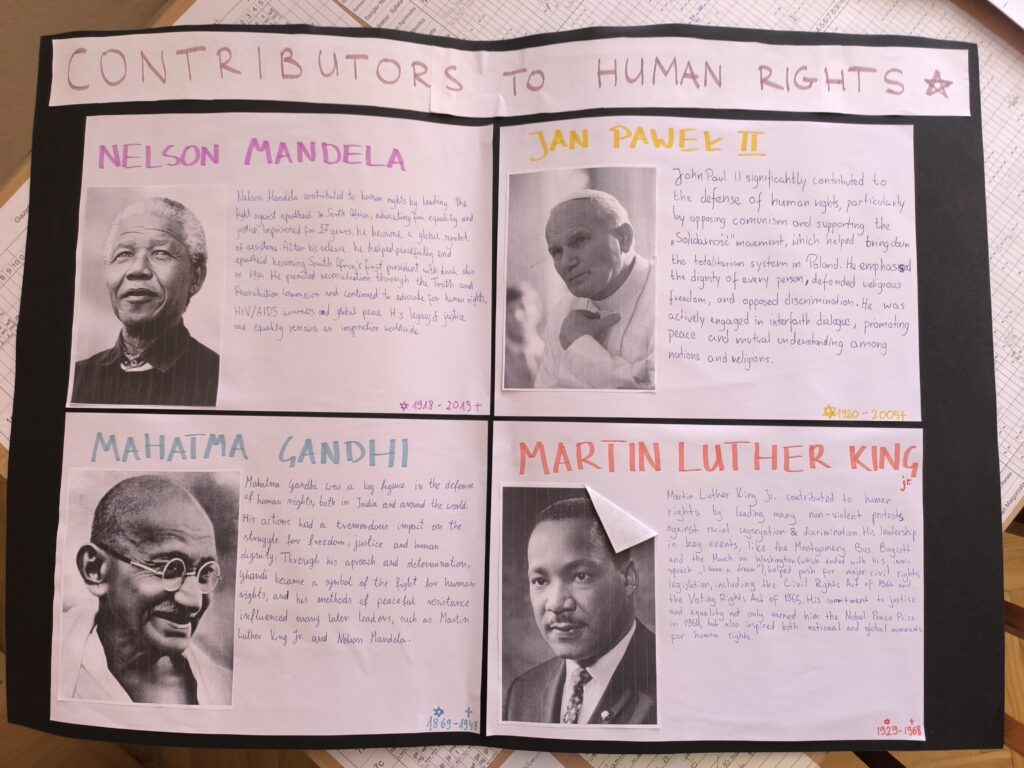 CONTRIBUTORS TO HUMAN RIGHTS
NELSON MANDELA
Nelson Mandela contributed to human rights by leading the
fight against apartheid in South Africa, advocating for equality and
justice. Imprisoned for 27 years, he became a global symbol
of resistance. After his release, he helped peacefully end
apartheid becoming South Africa's first president with dark skin
in 1994. He promoted reconciliation through the Truth and
Reconciliation Commission and continued to advocate for human rights,
HIV/AIDS awareness and global peace. His legacy of justice
and equality remains an inspiration worldwide
1918 - 2013 +
JAN PAWEŁ II
John Paul II significantly contributed to
the defense of human rights, particularly
by opposing comunism and supporting the
„Solidarność" movement, which helped bring down
the totalitarian system in Poland. He emphasised
the dignity of every person, defended religious
freedom, and opposed discrimination. He was
actively engaged in interfaith dialogue, promoting
peace and mutual understanding among
nations and religions.
1920 - 2005+
MAHATMA GANDHI
Mahatma Gandhi was a key figure in the defense
of human rights, both in India and around the world.
His actions had a tremendous impact on the
struggle for freedom, justice and human
dignity. Through his aproach and determination,
Ghandi became a symbol of the fight for human
rights, and his methods of peaceful resistance
influenced many later leaders, such as Martin
Luther King Jr. and Nelson Mandela.
1869-1948
MARTIN LUTHER KING
jr
Martin Luther King Jr. contributed to human
rights by leading many non-violent protests
against racial segregation & discrimination. His leadership
in key events, like the Montgomery Bus Boycott
and the March on Washington (which ended with his iconic
speech „I have a dream") helped push for major civil rights
legislation, including the Civil Rights Act of 1964 and
the Voting Rights Act of 1965. His commitment to justice
and equality not only earned him the Nobel Peace Prize
in 1964, but also inspired both national and global movements
for human rights.
1929-1968